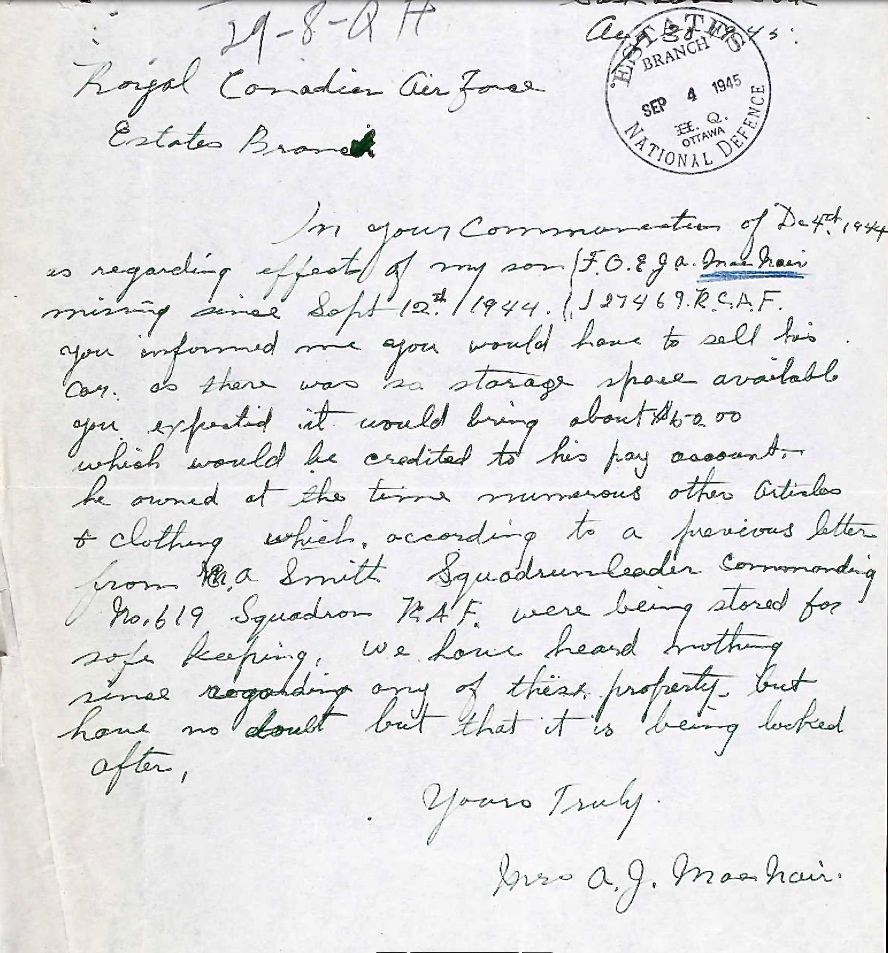 29-8-Q H
Aug 30 1945.
ESTATES
BRANCH
SEP 4 1945
H. Q.
OTTAWA
NATIONAL DEFENCE
Royal Canadian Air Force
Estates Branch
In your Communication of De 4th, 1944
as regarding effect of my son (F.O. E J A. MacNair
missing since Sept 12th, 1944. (J 27469. R.C.A.F.
you informed me you would have to sell his
car. as there was no storage space available
you expected it would bring about
which would be credited to his pay account.
he owned at the time numerous other articles
& clothing which, according to a previous letter
from a Smith Squadron leader Commanding
No. 619 Squadron R.A.F. were being stored for
safe keeping, we have heard nothing
since regarding any of these property but
have no doubt but that it is being looked
after,
Yours Truly.
Mrs A. J. MacNair.